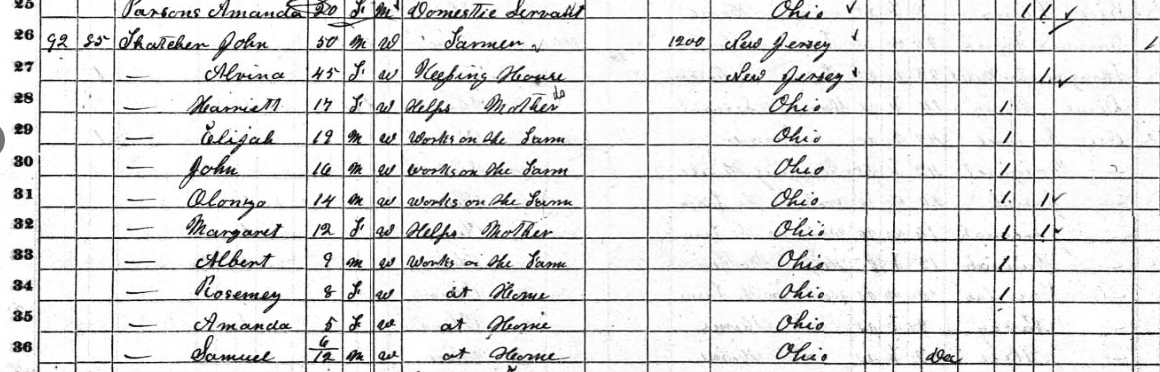 25 Parsons Amanda 20 F M Domestic Servant Ohio 1 1 ✓
26 92 85 Thatcher John 50 m W Farmer 1200 New Jersey 1
27 — Alvina 45 F w Keeping House New Jersey 1 ✓
28 — Harriett 17 F w Helps Mother Ohio 1
29 — Elijah 19 m w Works on the Farm Ohio 1
30 John 16 m w works on the Farm Ohio 1
31 — Olonzo 14 m w works on the Farm Ohio 1 1 ✓
32 — Margaret 12 F w Helps Mother Ohio 1 1 ✓
33 — Albert 9 m w works on the Farm Ohio 1
34 — Rosemey 8 F w at Home Ohio 1
35 — Amanda 5 F w at Home Ohio
36 — Samuel 6/12 m w at Home Ohio Dec